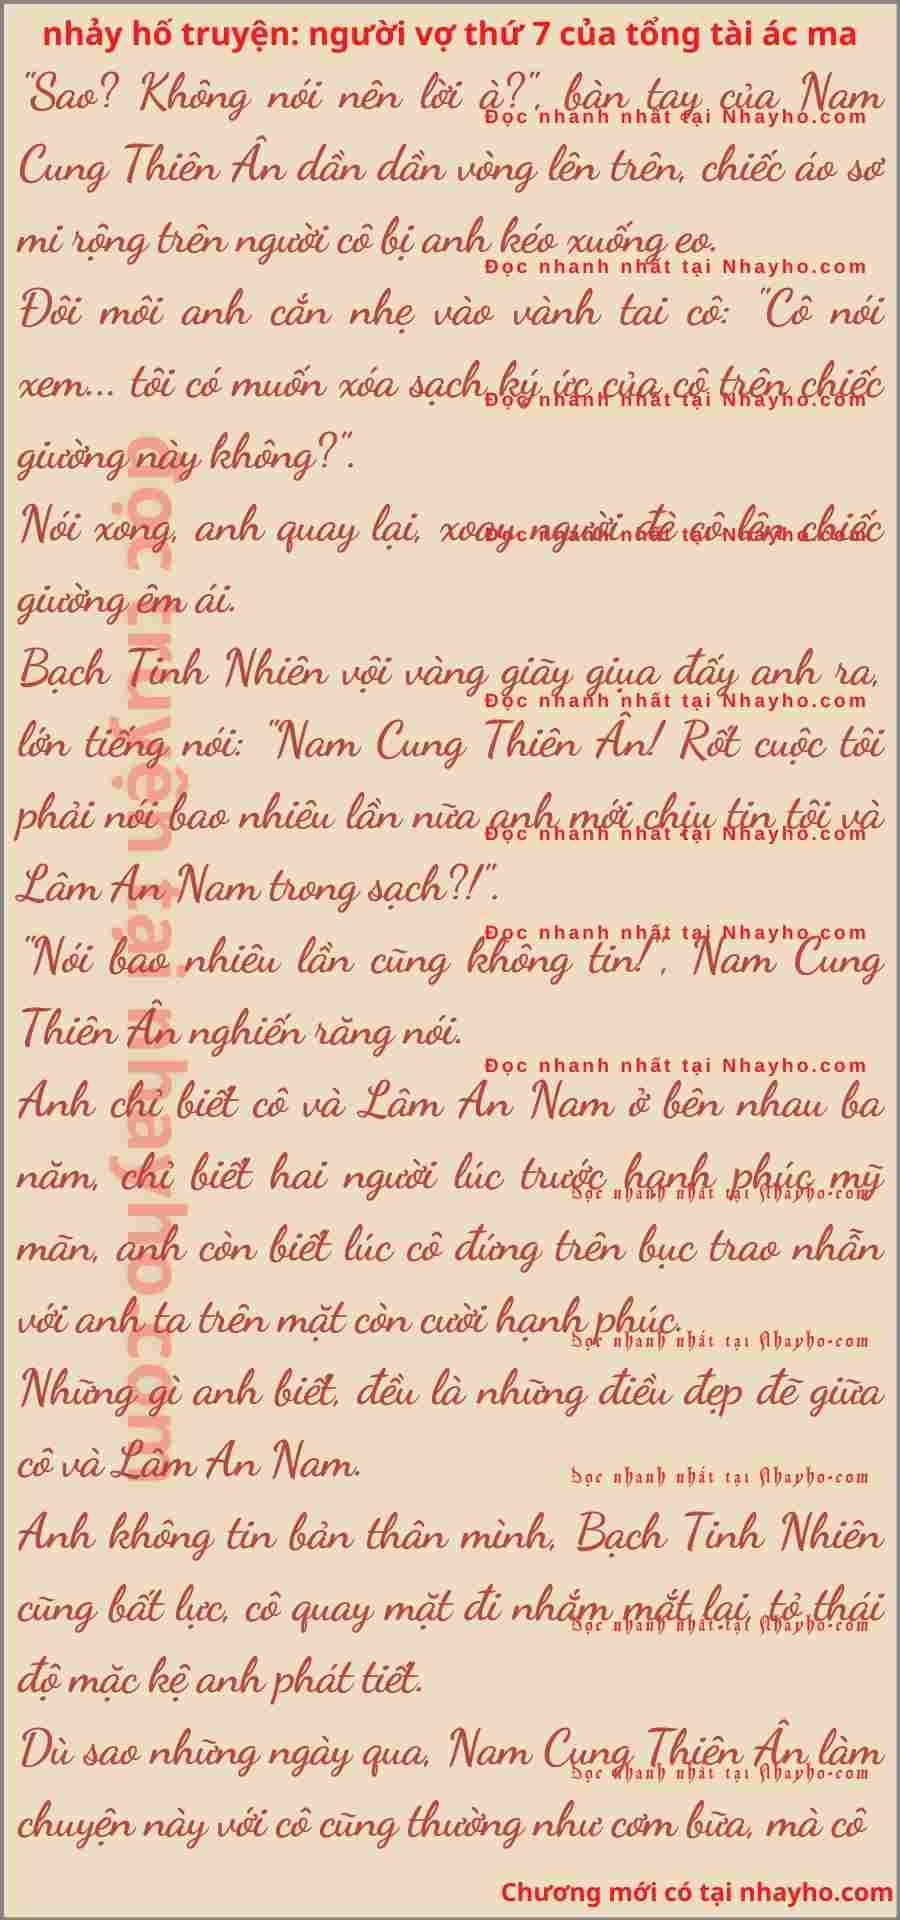 nhảy hố truyện: người vợ thứ 7 của tổng tài ác ma
"Sao? Không nói nên lời à?", bàn tay của Nam
Đọc nhanh nhất tại Nhayho.com
Cung Thiên Ân dần dần vòng lên trên, chiếc áo sơ
mi rộng trên người cô bị anh kéo xuống eo.
Đọc nhanh nhất tại Nhayho.com
Đôi môi anh cắn nhẹ vào vành tai cô: "Cô nói
xem... tôi có muốn xóa sạch ký ức của cô trên chiếc
Đọc nhanh nhất tại Nhayho.com
giường này không?".
Nói xong, anh quay lại, xoay người đè cô lên chiếc
Đọc nhanh nhất tại Nhayho.com
giường êm ái.
Bạch Tinh Nhiên vội vàng giãy giụa đấy anh ra,
Đọc nhanh nhất tại Nhayho.com
lớn tiếng nói: "Nam Cung Thiên Ân! Rốt cuộc tôi
phải nói bao nhiêu lần nữa anh mới chịu tin tôi và
Đọc nhanh nhất tại Nhayho.com
Lâm An Nam trong sạch?!".
Đọc nhanh nhất tại Nhayho.com
"Nói bao nhiêu lần cũng không tin!", Nam Cung
Thiên Ân nghiến răng nói.
Đọc nhanh nhất tại Nhayho.com
Anh chỉ biết cô và Lâm An Nam ở bên nhau ba
năm, chỉ biết hai người lúc trước hạnh phúc mỹ
Đọc nhanh nhất tại Nhayho.com
mãn, anh còn biết lúc cô đứng trên bục trao nhẫn
với anh ta trên mặt còn cười hạnh phúc.
Đọc nhanh nhất tại Nhayho.com
Những gì anh biết, đều là những điều đẹp đẽ giữa
cô và Lâm An Nam.
Đọc nhanh nhất tại Nhayho.com
Anh không tin bản thân mình, Bạch Tinh Nhiên
cũng bất lực, cô quay mặt đi nhắm mắt lại, tỏ thái
Đọc nhanh nhất tại Nhayho.com
độ mặc kệ anh phát tiết.
Dù sao những ngày qua, Nam Cung Thiên Ân làm
Đọc nhanh nhất tại Nhayho.com
chuyện này với cô cũng thường như cơm bữa, mà cô
đọc truyện tại nhayho.com
Chương mới có tại nhayho.com